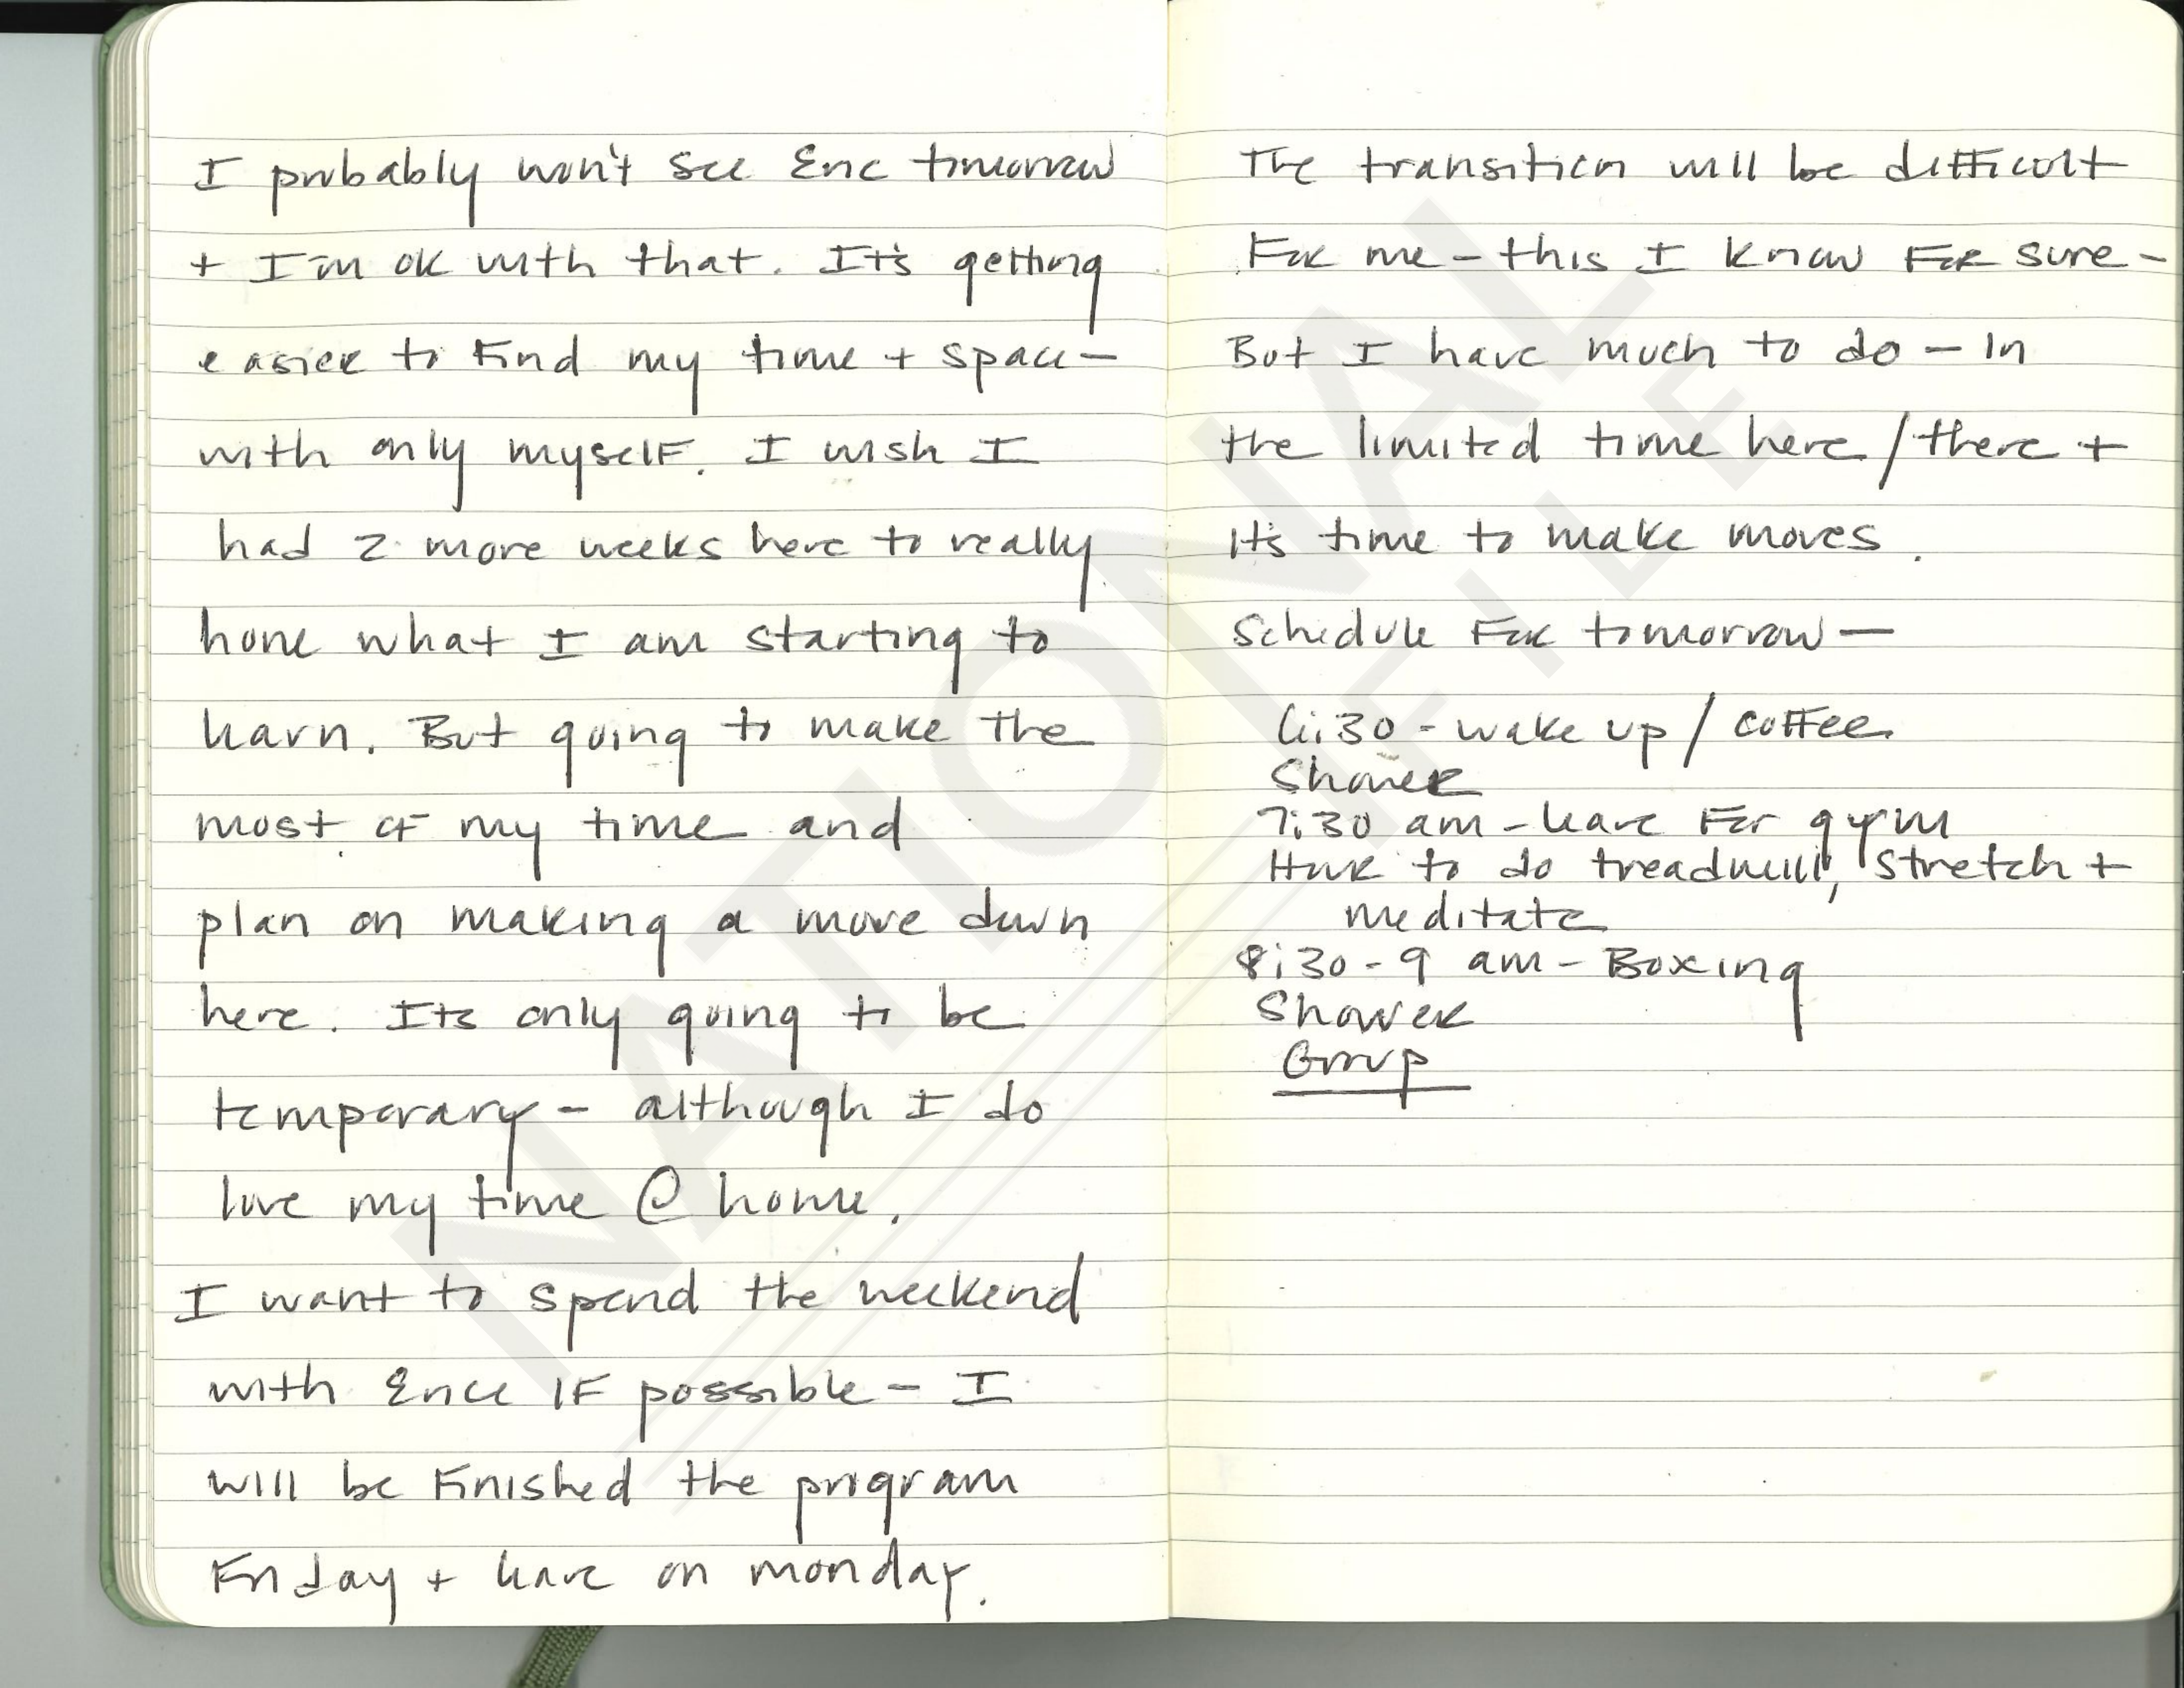 I probably won't see Eric tomorrow
+ I'm ok with that. It's getting
easier to find my time + space -
with only myself. I wish I
had 2 more weeks here to really
hone what I am starting to
learn. But going to make the
most of my time and
plan on making a move down
here. Its only going to be
temporary - although I do
love my time @ home.
I want to spend the weekend
with Erice IF possible - I
will be finished the program
Friday + leave on monday.
The transition will be difficult
For me - this I know For sure -
But I have much to do - In
the limited time here / there +
It's time to make moves.
Schedule For tomorrow -
6:30 - wake up / coffee
Shower
7:30 am - leave For gym
Have to do treadmill, stretch +
meditate
8:30 - 9 am - Boxing
Shower
Group
NATIONAL
FILE